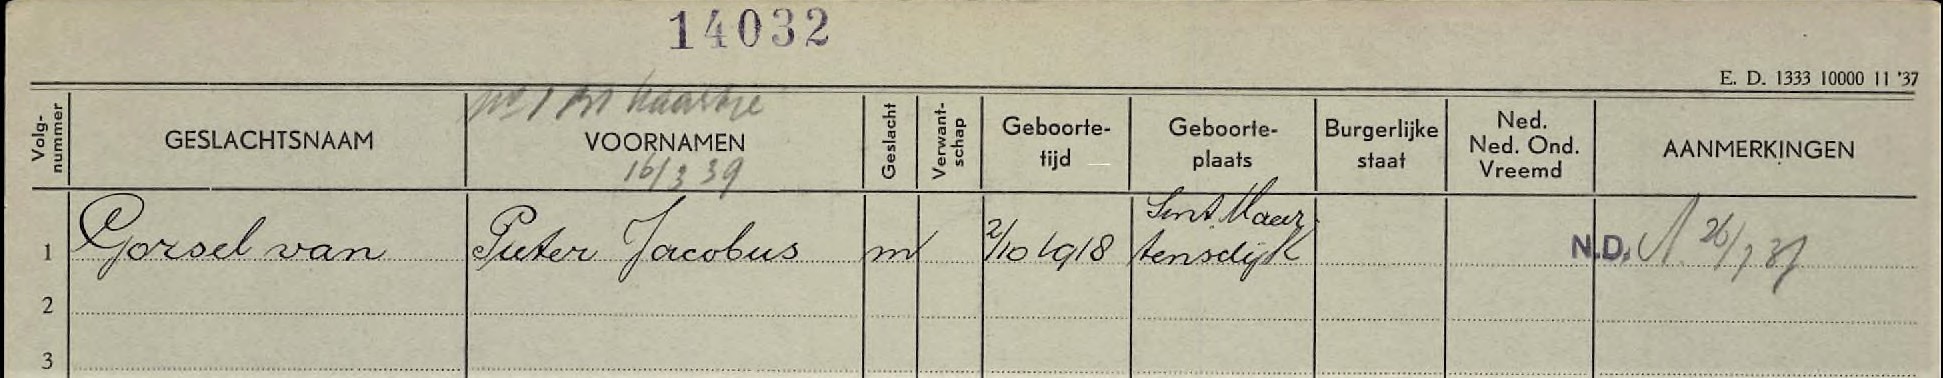 14032
E. D. 1333 10000 11 '37
Volg-
nummer
GESLACHTSNAAM
kaartje
VOORNAMEN
16/3 39
Geslacht
Verwant-
schap
Geboorte-
tijd
Geboorte-
plaats
Burgerlijke
staat
Ned.
Ned. Ond.
Vreemd
AANMERKINGEN
1 Gorsel van Pieter Jacobus m 2/10 1918 Sint Maar
tensdijk N.D.
2
3